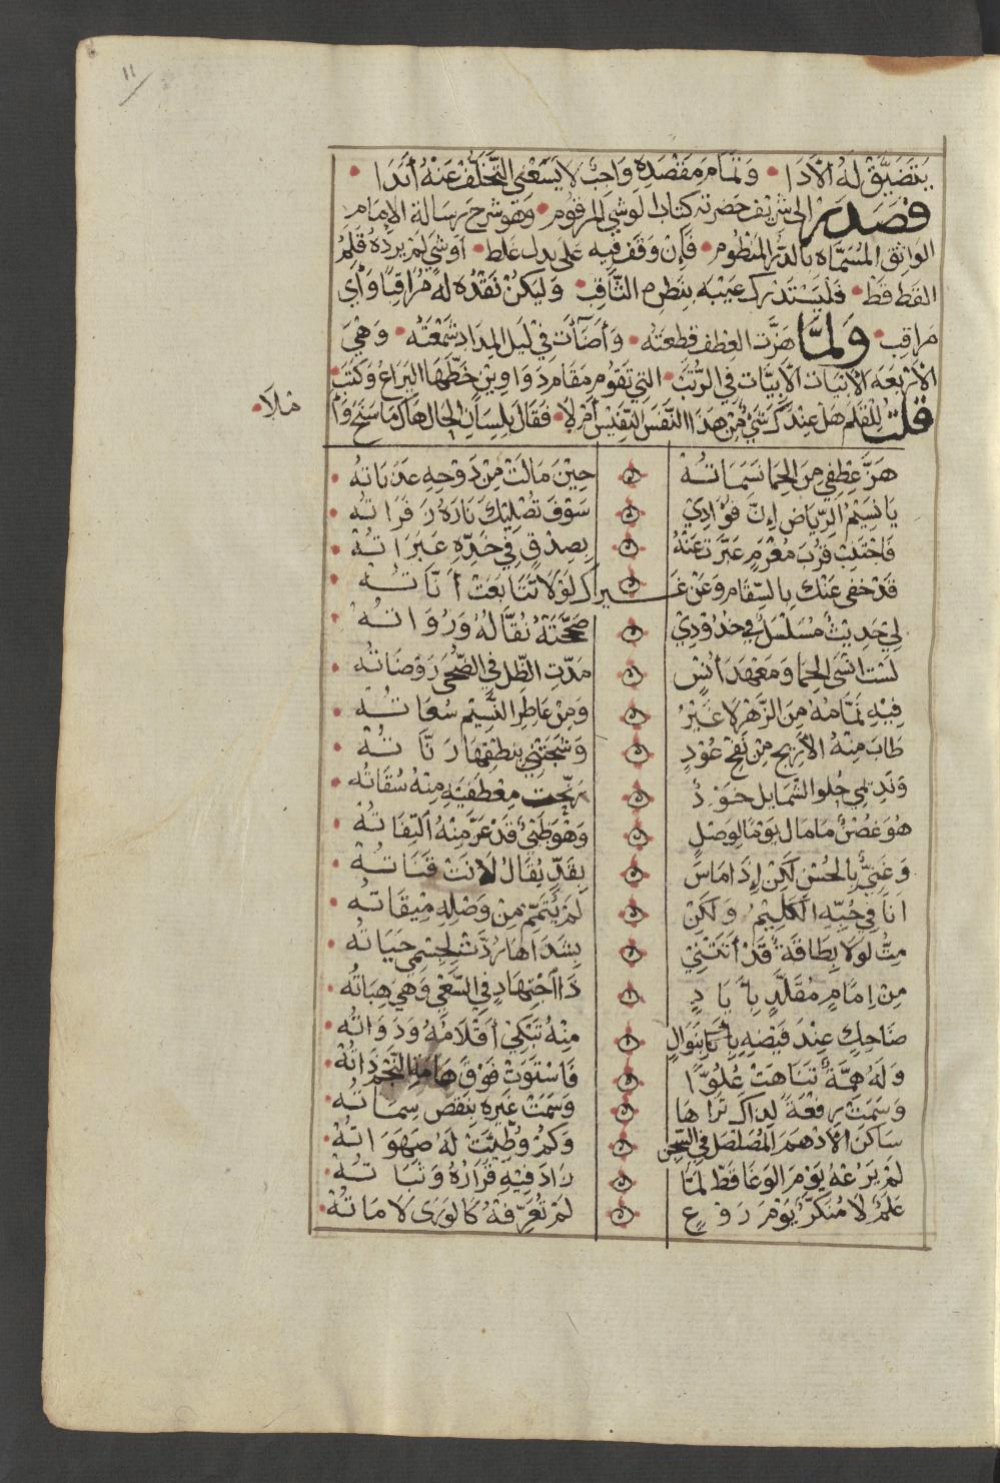 ١١
يَتَضَيَّقُ لَهُ الأدَا • وَتَمَامَ مَقْصَدِهِ وَاجِبٌ لَا يَسَعُنِي التَّخَلُّفُ عَنْهُ أَبَدَا •
فصَدَر إلى شريف حضرته كتاب الوشي المرقوم • وَهو شرح رسالة الامام
الواثق المُسَمَّاه بالدُّرِّ المنظوم • فَإن وَقَفَ فيه عَلى بدل غلط • اوشي لم يردْهُ قَلَمُ
القط قط • فَليَسْتَدْرك عَيْبَه بنظرهِ الثَّاقِب • وَليَكُنْ نَقْدُه لهُ مُرَاقِبًا وَأي
مراقِب • وَلمَّا هَزَّت العِطف قطعتَه • وَأضَآءَت فِي لَيل المِدَاد شمْعَتُه • وَهْيَ
الأرْبعَه الأبيَات الأبيَّات في الرُّتَب • التي تقوُم مَقام دَوَاوين خَطَّهَا اليَرَاعُ وَكتَب •
قلت للقَلم هَل عِندَكَ شَيْءٌ مِن هَذا النَّفَس النَّفِيس أم لا • فَقالَ بلِسَان الحَال هَاكَ مَا سَنَحَ وَا
مْلَا •
هَزَّ عِطفِي مِنَ الحِمَا نَسَمَاتُهْ حِيْنَ مَالَتْ مِنْ دَوْحِهِ عَذَبَاتهْ •
يَا نَسِيْمَ الرِّيَاض إنَّ فؤادِيْ سَوْفَ تُصْلِيْكَ نَارَهُ زَفَرَاتهْ •
فَاجْتَنِبْ قُرْبَ مُغْرَمٍ عَبَّرَتْ عَنْهُ بِصِدْقٍ فِي خَدِّهِ عَبَرَاتُهْ •
قَدْ خَفِى عَنْكَ بِالسِّقَام وَعَنْ غَيرِك لَوْلَا تَتَابَعَتْ أنَّاتُهْ •
لِيْ حَدِيْثٌ مُسَلْسَلٌ فِي خُدُوْدِيْ صَحَّحَتْهُ نُقَّالُهُ وَرُوَاتُهْ •
لَسْتُ انْسَى الحِمَا وَمَعْهَدَ أُنْسٍ مَدَّتِ الظِّل فِي الضُّحَى رَوْضَاتهْ •
فِيْهِ نَمَّامُهُ مِنَ الزَّهْرِ لَا غَيْرُ وَمِنْ عَاطِرِ النَّسِيْمِ سُعَاتُهْ •
طَابَ مِنْهُ الأرِيْجُ مِنْ نَفْحِ عُوْدٍ وَشَجَتْنِي بِنُطْقِهَا رَنَّاتُهْ •
وَنَدِيْمِي حُلوالشَّمَايل خَوْدٌ رَنَّحَتْ مِعْطَفَيْهِ مِنْهُ سُقَاتُه •
هُوَ غُصْنٌ مَا مَال يَوْمًا لِوَصْلٍ وَهْوَ ظَبْيٌ قَدْ عَزَّ مِنْهُ التِفَاتُهْ •
وَغَنِيٌّ بِالحُسْنِ لَكِنْ إذَا مَاسَ بِقَدٍّ يُقَالُ لَانَتْ قَنَاتُهْ •
انَا فِي حُبِّهِ الكَلِيْمُ وَلَكِنْ لَمْ يُتَمَّمْ مِنْ وَصْلِهِ مِيْقَاتُه •
مِتُّ لَوْلَا بِطَاقَةٌ قَدْ أتَتْنِيْ بِشَذَاهَا رُدَّتْ لِجِسْمِي حَيَاتُه •
مِنْ إمَامٍ مُقَلَّدٍ بِأَيَادٍ ذَا اجْتِهَادٍ فِي السَّعْيِ وَهْيَ هِبَاتُه •
ضَاحِكٍ عِنْدَ فَيْضِهِ بِنَوَالٍ مِنْهُ تَبْكِي أقْلَامُهُ وَدَوَاتُه •
وَلَهُ هِمَّةٌ تَنَاهَتْ عُلُوًّا فَاسْتَوَتْ فَوْقَ هَامَةِ النَّجْمِ ذَاتُهْ •
وَسَمَتْ رِفْعَةً لِذَاكَ تَرَاهَا وَسَمَتْ غَيْرَهُ بِنَقْصٍ سِمَاتُهْ •
سَاكِنَ الأدْهَمَ المُصَلْصَلَ فِي السِّجْنِ وَكَمْ وُطِّئَتْ لَهُ صَهَوَاتُهْ •
لَمْ يَرُعْهُ يَوْمَ الوَغَا قَطُّ لَمَّا زَادَ فِيْهِ قَرَارُهُ وَثَبَاتُهْ •
عَلَمٌ لَا مُنَكَّرٌ يَوْمَ رَوْعٍ لَمْ تُعَرِّفْهُ كَالْوَرَى لَامَاتُهْ •